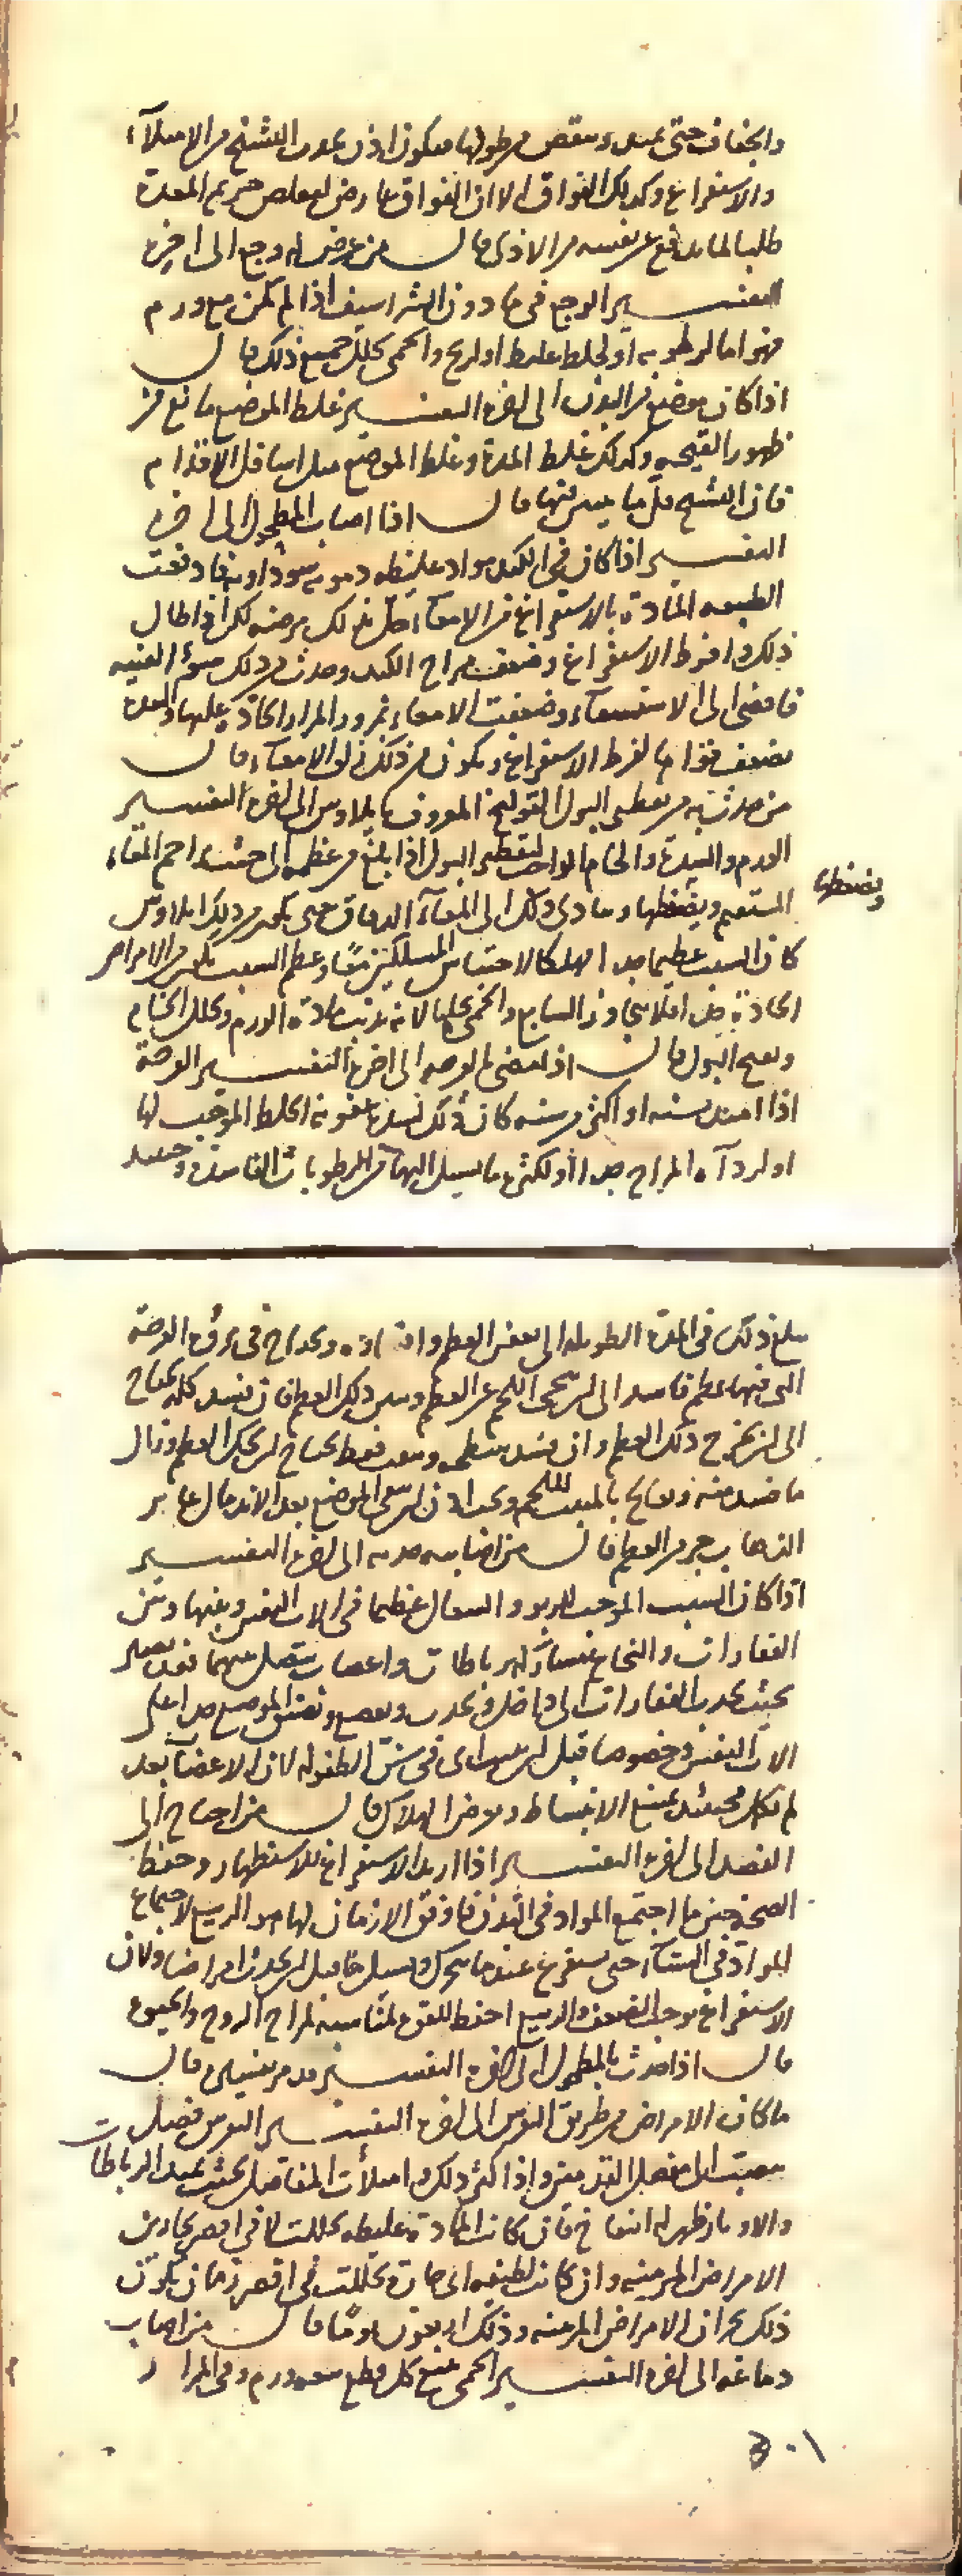 والجفاف حتى تمتد وينقص من طولها فيكون اذن يحدث التشنج من الامتلآء
والاستفراغ وكذلك الفواق الا ان الفواق عارض لتقلص جرم المعدة
طلبا لما يدفع عن نفسه من الاذى قال من عرض له وجع الى اخره
التفسير الوجع في ما دون الشراسيف اذا لم يكن مع ورم
فهو اما لرطوبة او لخلط غليظ او لريح والحمى تحلل جميع ذلك قال
اذا كان موضع من البدن الى اخره التفسير غلظ الموضع مانع من
ظهور القيح وكذلك غلظ المدة وغلظ الموضع مثل اسافل الاقدام
فان التشنج قال اذا اصاب المطحول الى اخره
التفسير اذا كان في الكبد مواد غليظة دموية سوداوية فدفعت
الطبيعة المادة بالاستفراغ من الامعآء حل بذلك مرضه لكن اذا طال
ذلك وافرط الاستفراغ وضعف مزاج الكبد وحدث من ذلك سوء القنية
فافضى الى الاستسقآء وضعفت الامعاء بمرور المرار الحادة عليها والمعدة
تضعف قواها لفرط الاستفراغ ويكون من ذلك زلق الامعآء قال
من حدث به من تقطير البول القولنج المعروف بايلاوس الى اخره التفسير
الورم والسدة والخام الموجب لتقطير البول اذا بلغ من عظمه الى حيث يزاحم المعآء
المستقيم ويضغطها وتادى ذلك الى المعآء الدقاق حتى يحدث من ذلك ايلاوس
ويضغطها
كان السبب عظيما جدا مهلكا لاحتباس المسلكين معا وعظم السبب يكون من الامراض
الحادة جدا فلا يتجاوز السابع والحمى تحلها لانه تذيب مادة الورم وتحلل الخام
وتفتح البول قال اذا مضى بالقرحة الى اخره التفسير القرحة
اذا امتدت سنة او اكثر من سنة كان ذلك لشدة عفونة الخلط الموجب لها
او لردآءة المزاج جدا او لكثرة ما يسيل اليها من الرطوبات الفاسدة وحينئذ
يبلغ ذلك في المدة الطويلة الى تعفن العظم وافساده ويحتاج في برؤ القرحة
التي فيها عظم فاسد الى ان ينحى اللحم عن العظم ويبين ذلك العظم فان فسد كله يحتاج
الى ان يخرج ذلك العظم وان فسد سطحه فقط يحتاج ان يحك العظم ويزال
ما فسد منه ويعالج بالمنبت للحم ويجب اذن ان يبقى الموضع بعد الاندمال غائرا
لذهاب جزء من العظم قال من اصابته حدبة الى اخره التفسير
اذا كان السبب الموجب للربو والسعال عظيما في الات النفس وبينها وبين
الفقارات والنخاع بمشاركة رباطات واعصاب تتصل بينهما فقد يصير
بحيث يجذب الفقارات الى داخل فيحدب ويضيق الموضع جدا على
الات النفس وخصوصا قبل ان يبتدئ في سن الطفولة لان الاعضآء بعد
لم تكمل فحينئذ يمنع الانبساط ويعرض الهلاك قال من احتاج الى
الفصد الى اخره التفسير اذا اريد الاستفراغ للاستظهار وحفظ
الصحة حين ما اجتمع المواد في البدن فاوفق الازمان لها هو الربيع لاجتماع
المواد في الشتآء حتى يستفرغ عندما يتحرك ويسيل قبل ان يحدث امراضا ولان
الاستفراغ يوجب الضعف والربيع احفظ للقوة لمناسبته لمزاج الروح والحيوة
قال اذا حدث بالمطحول الى اخره التفسير قد مر تفسيره قال
ما كان من الامراض من طريق النقرس الى اخره التفسير النقرس فضل
ينصب الى مفصل القدمين واذا كثر ذلك وامتلأت المفاصل بحيث تمتد الرباطات
والاوتار ظهر له انتفاخ فان كانت المادة غليظة تحللت لا في اقصر بحارين
الامراض المزمنة وان كانت لطيفة او حارة تحللت في اقصر زمان يكون
ذلك بحران الامراض المزمنة وذلك اربعون يوما قال من اصاب
دماغه الى اخره التفسير الحمى تتبع كل قطع معه ورم وقئ المرار